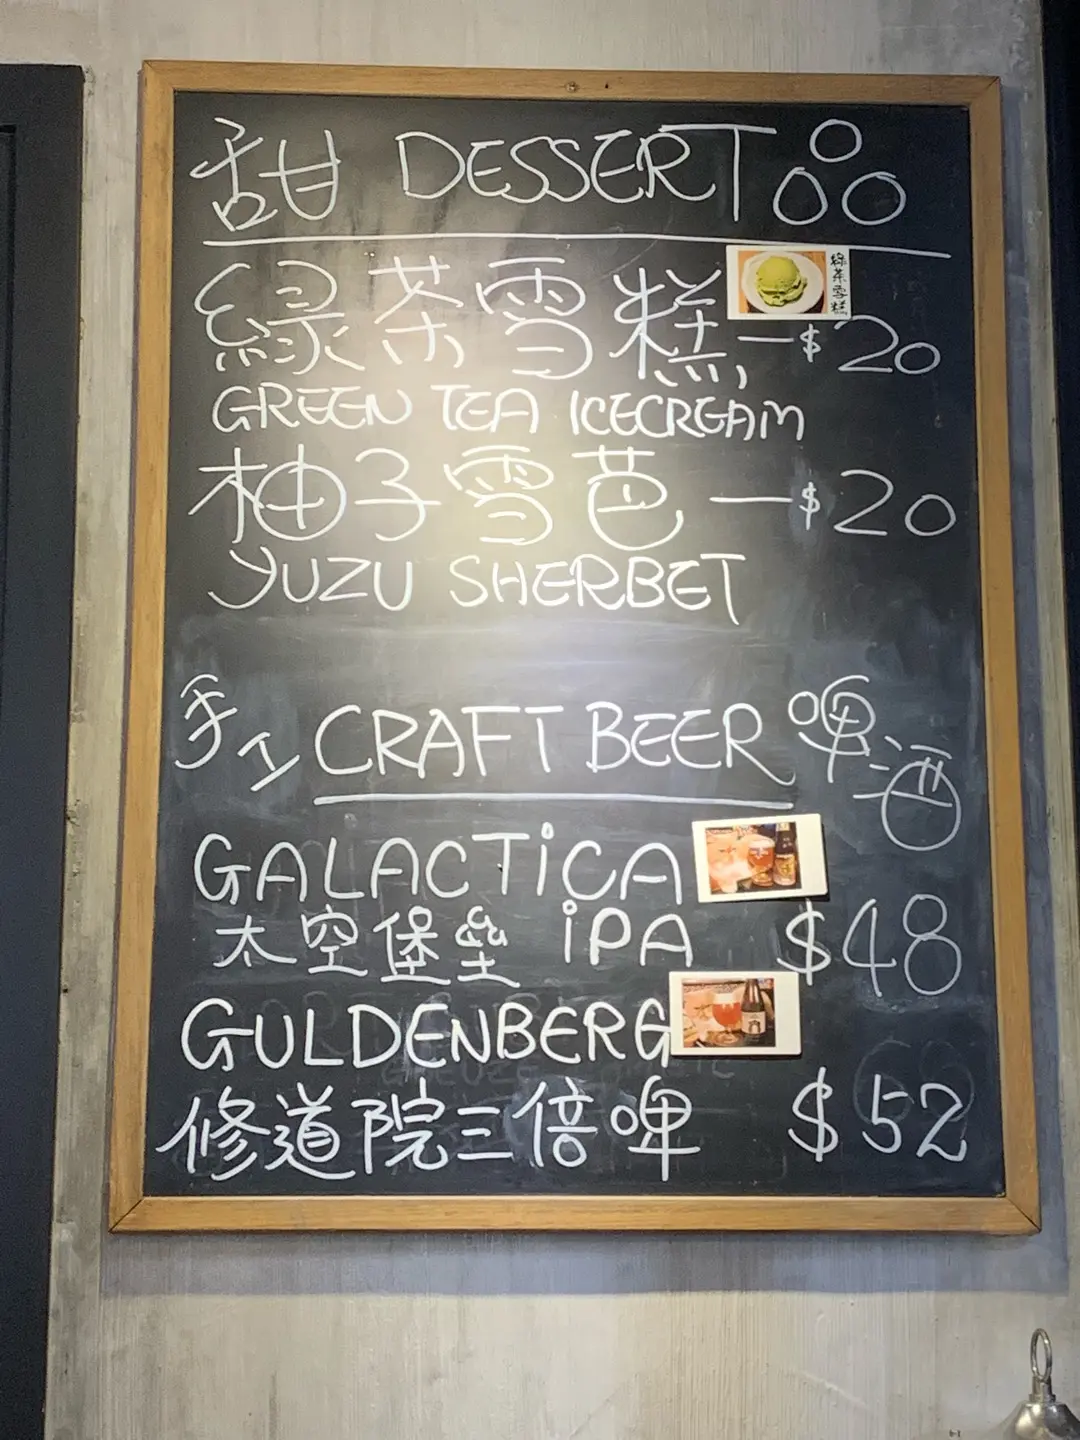 甜 DESSERT 品
綠茶雪糕 — $20
綠茶雪糕
GREEN TEA ICECREAM
柚子雪芭 — $20
YUZU SHERBET
手工 CRAFT BEER 啤酒
GALACTICA
太空堡壘 IPA $48
GULDENBERG
修道院三倍啤 $52